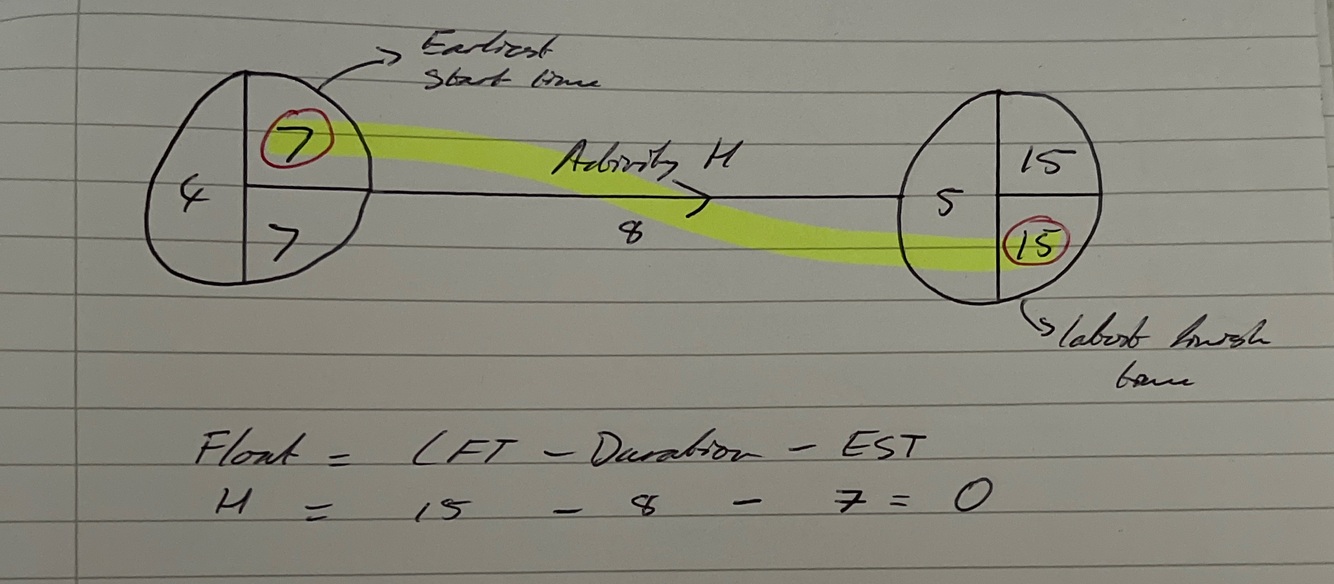 Earliest
start time
7
Activity H
15
4
5
7
8
15
latest finish
time
Float = LFT - Duration - EST
H = 15 - 8 - 7 = 0